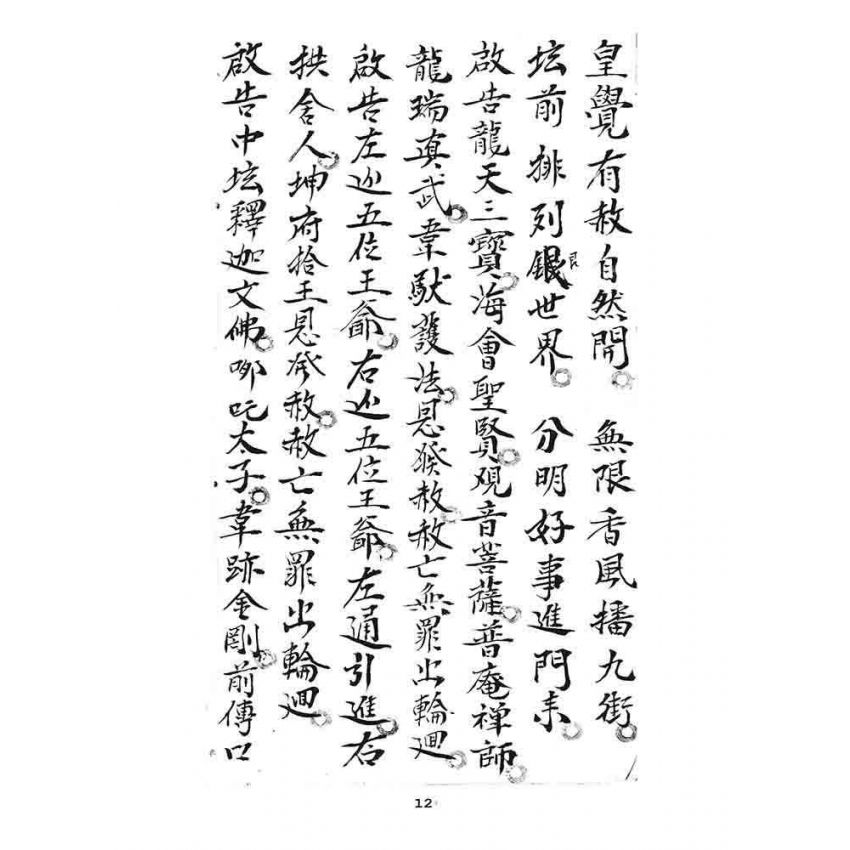 皇覺有赦自然開　無限香風播九街
坛前排列銀世界　分明好事進門来
啟告龍天三寶海會聖賢观音菩薩普庵禅師
龍瑞真武韋馱護法恩發赦赦亡無罪出輪迴
啟告左迎五位王爺右迎五位王爺左通引進右
拱舍人坤府拾王恩發赦赦亡無罪出輪迴
啟告中坛釋迦文佛哪吒太子韋跡金剛前傳口
12